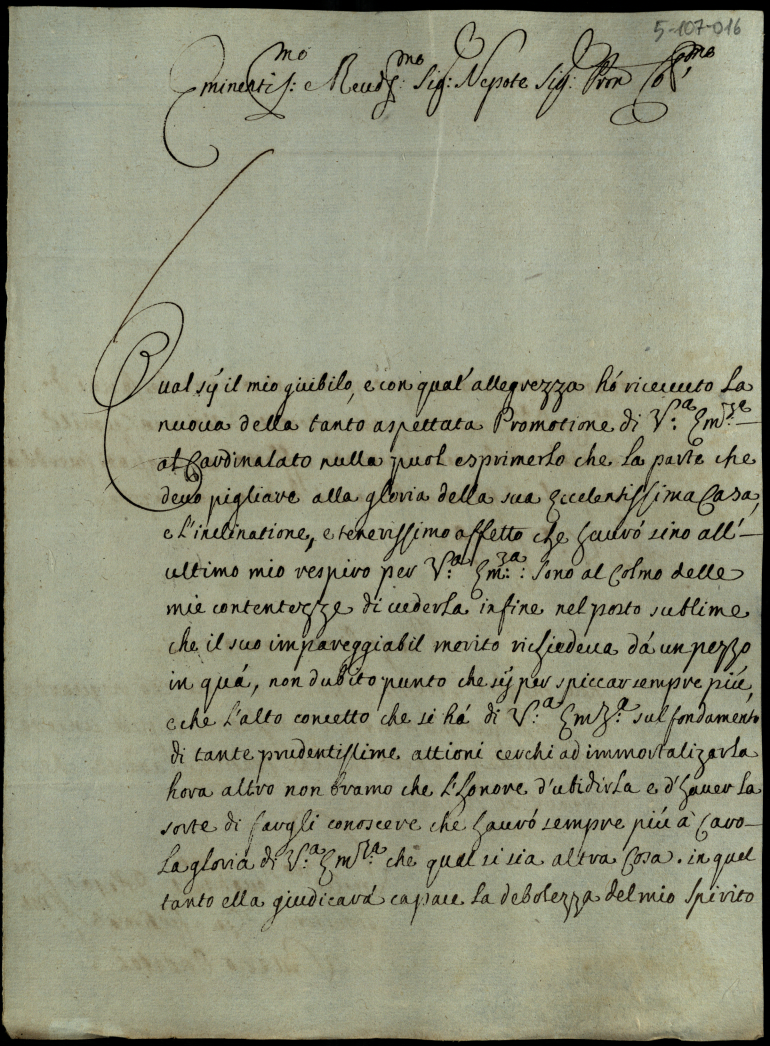 5-107-016
Eminentiss:mo e Reuds:mo Sig: Nepote Sig: Pron Co:mo
Qual sÿ il mio giubilo, e con qual' allegrezza hó riceuuto la
nuoua della tanto aspettata Promotione di V:a Em:za
al Cardinalato nulla puol esprimerlo che la parte che
deuo pigliare alla gloria della sua Eccelentissima Casa,
e l'inclinatione, e tenerissimo affetto che hauró sino all'
ultimo mio respiro per V:a Em:za: sono al Colmo delle
mie contentezze di uederla infine nel posto sublime
che il suo impareggiabil merito richiedeua dá un pezzo
in quá, non dubito punto che sÿ per spiccar sempre piú,
e che l'alto concetto che si há di V:a Emza. sul fondamento
di tante prudentissime attioni cerchi ad immortalizarla
hora altro non bramo che l'honore d'ubidirla e d'hauer la
sorte di fargli conoscere che hauró sempre piú à Caro
la gloria di V:a Em:za che qual si sia altra Cosa. in quel
tanto ella giudicará capace la debolezza del mio Spirito